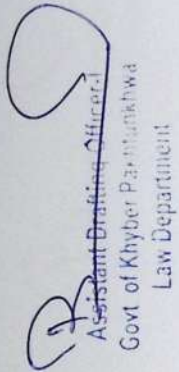 Assistant Drafting Officer-I
Govt of Khyber Pakhtunkhwa
Law Department